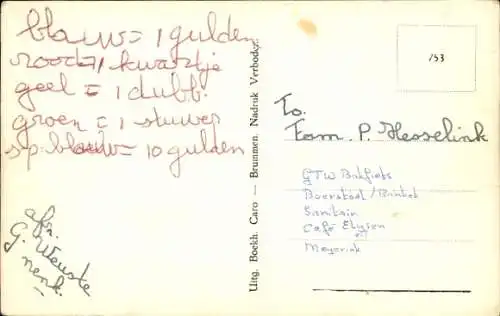 blauw = 1 gulden
rood = 1 kwartje
geel = 1 dubb.
groen = 1 stuver
sp. blauw = 10 gulden
afz.
G.
nenk.
Uitg. Boekh. Caro — Brummen. Nadruk Verboden.
153
To.
Fam. P. Hesselink
GTW Bakfiets
Boerstoel/Winkel
Sanitair
Café Elysen
Meyerink